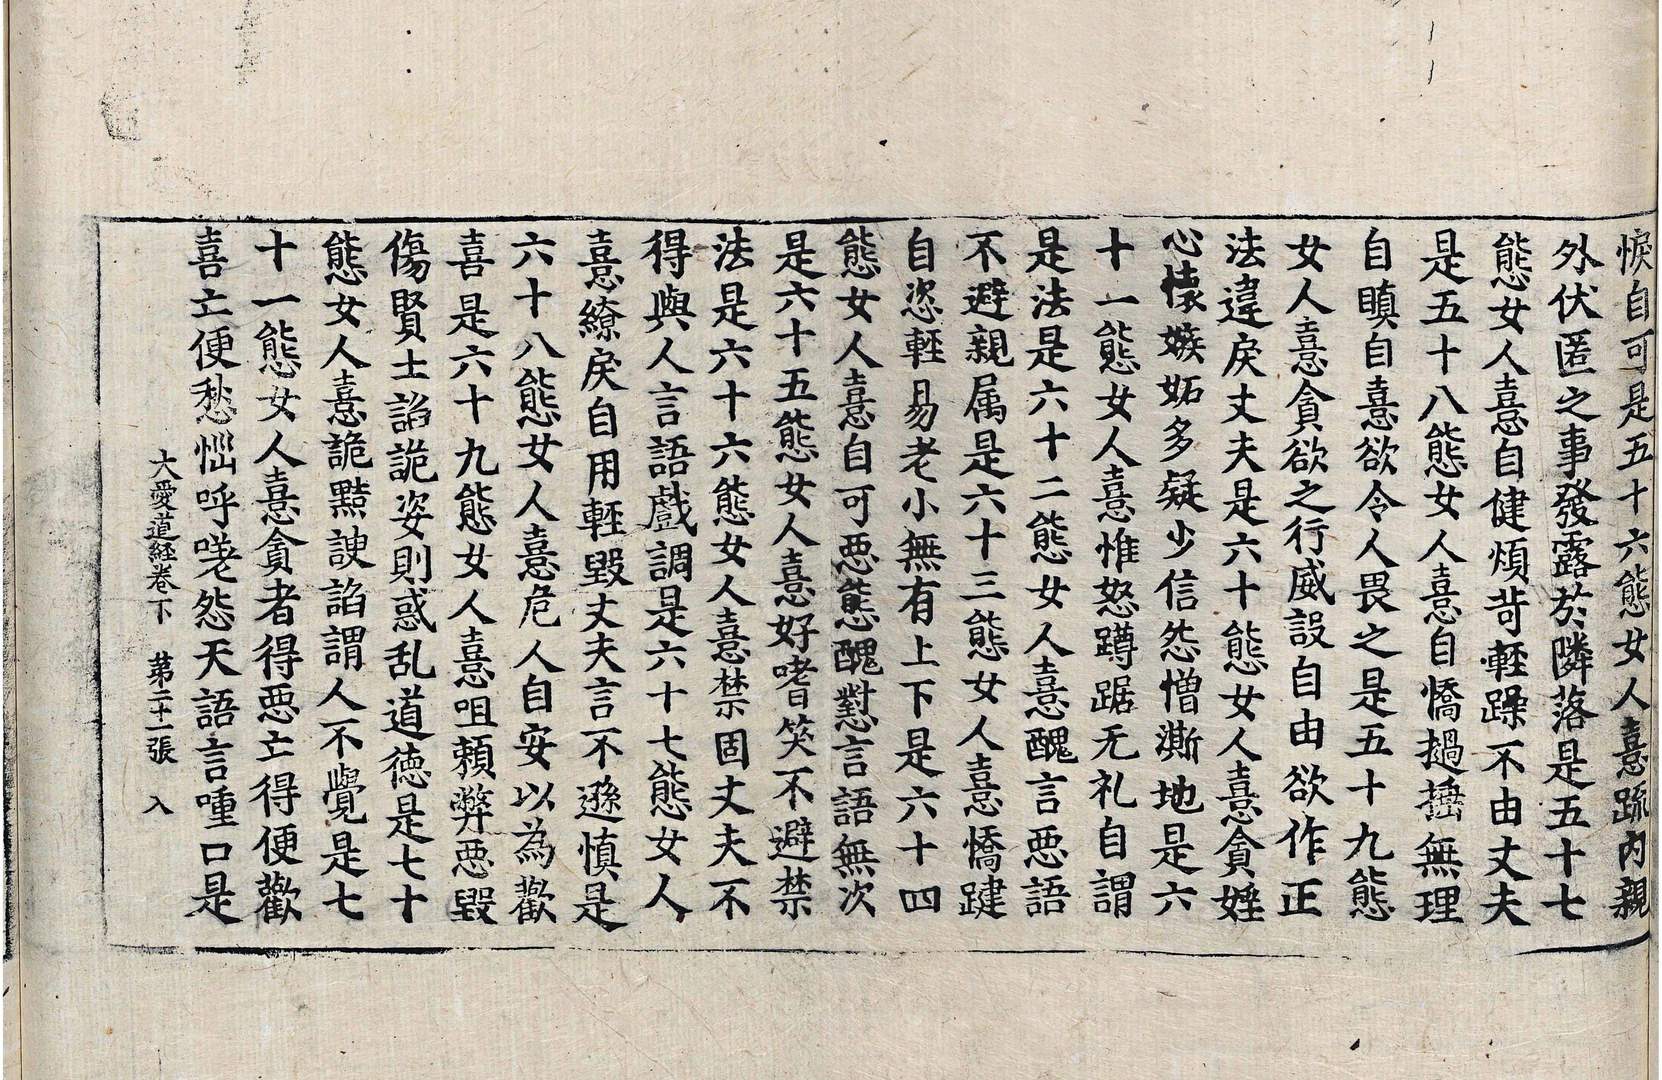 悷自可是五十六態女人憙疏內親
外伏匿之事發露於隣落是五十七
態女人憙自健煩苛輕躁不由丈夫
是五十八態女人憙自憍撾捶無理
自瞋自憙欲令人畏之是五十九態
女人憙貪欲之行威設自由欲作正
法違戾丈夫是六十態女人憙貪婬
心懷嫉妬多疑少信怨憎澌地是六
十一態女人憙惟怒蹲踞无礼自謂
是法是六十二態女人憙醜言惡語
不避親属是六十三態女人憙憍踺
自恣輕易老小無有上下是六十四
態女人憙自可惡態醜懟言語無次
是六十五態女人憙好嗜笑不避禁
法是六十六態女人憙禁固丈夫不
得與人言語戲調是六十七態女人
憙繚戾自用輕毀丈夫言不遜慎是
六十八態女人憙危人自安以為歡
喜是六十九態女人憙咀賴弊惡毀
傷賢士諂詭姿則惑乱道德是七十
態女人憙詭黠諛諂謂人不覺是七
十一態女人憙貪者得惡亡得便歡
喜亡便愁惱呼嗟怨天語言喠口是
大愛道經卷下 第二十一張 入